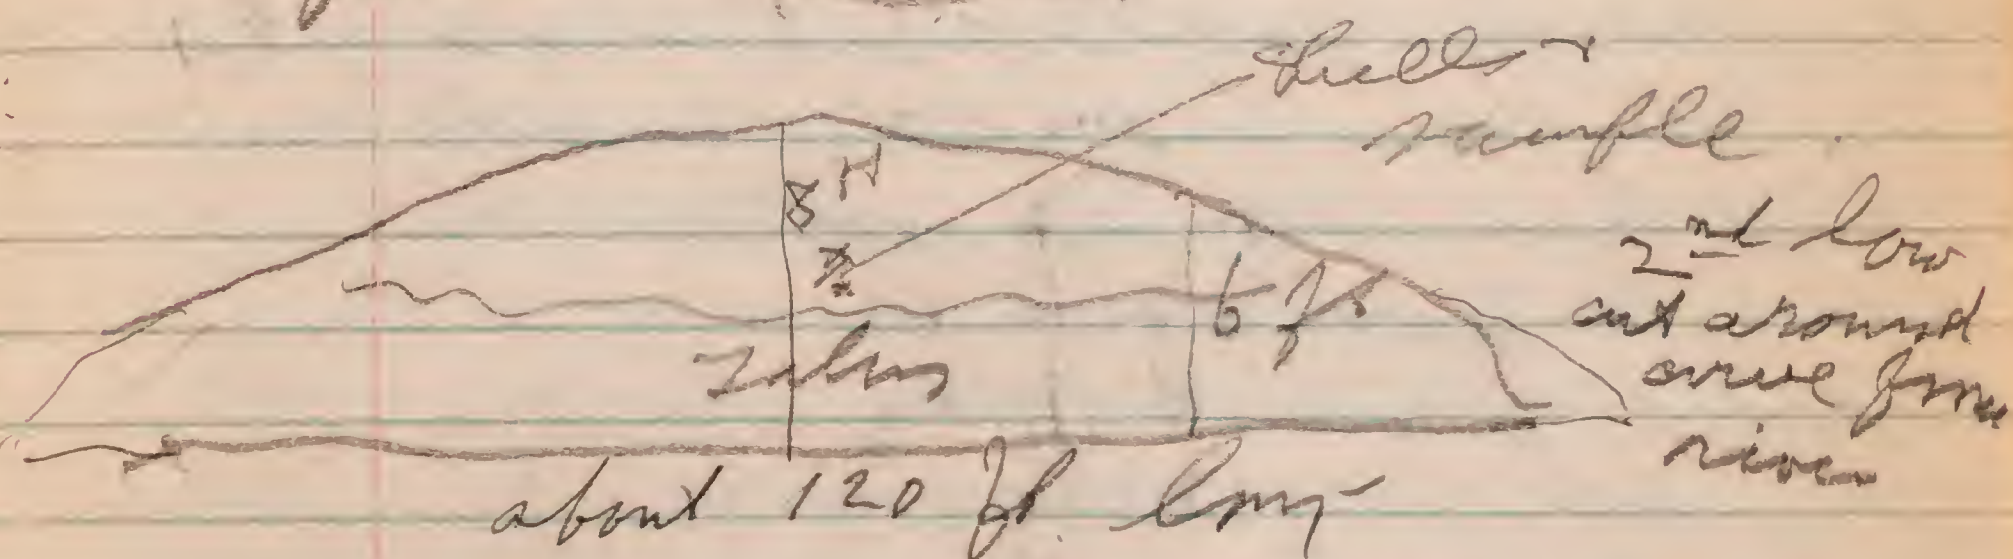 shells +
sample
8 ft
6 ft
2nd low
cut around
curve from
river
about 120 ft. long